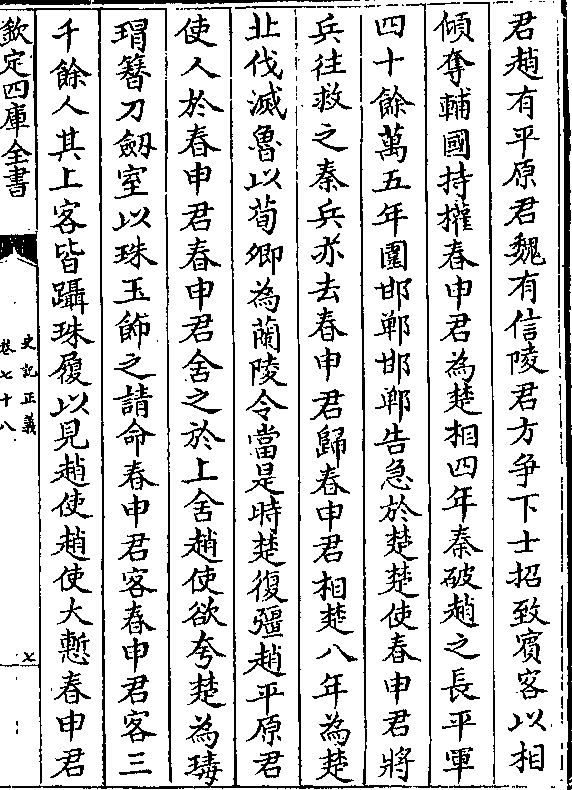 君趙有平原君魏有信陵君方爭下士招致賓客以相
傾奪輔國持權春申君為楚相四年秦破趙之長平軍
四十餘萬五年圍邯鄲邯鄲告急於楚楚使春申君將
兵往救之秦兵亦去春申君歸春申君相楚八年為楚
北伐滅魯以荀卿為蘭陵令當是時楚復彊趙平原君
使人於春申君春申君舍之於上舍趙使欲夸楚為瑇
瑁簪刀劒室以珠玉飾之請命春申君客春申君客三
千餘人其上客皆躡珠履以見趙使趙使大慙春申君
欽定四庫全書
史記正義
卷七十八
七